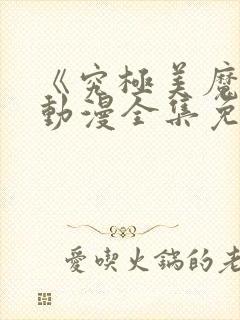 《究極美魔
動漫全集免
愛喫火鍋的老